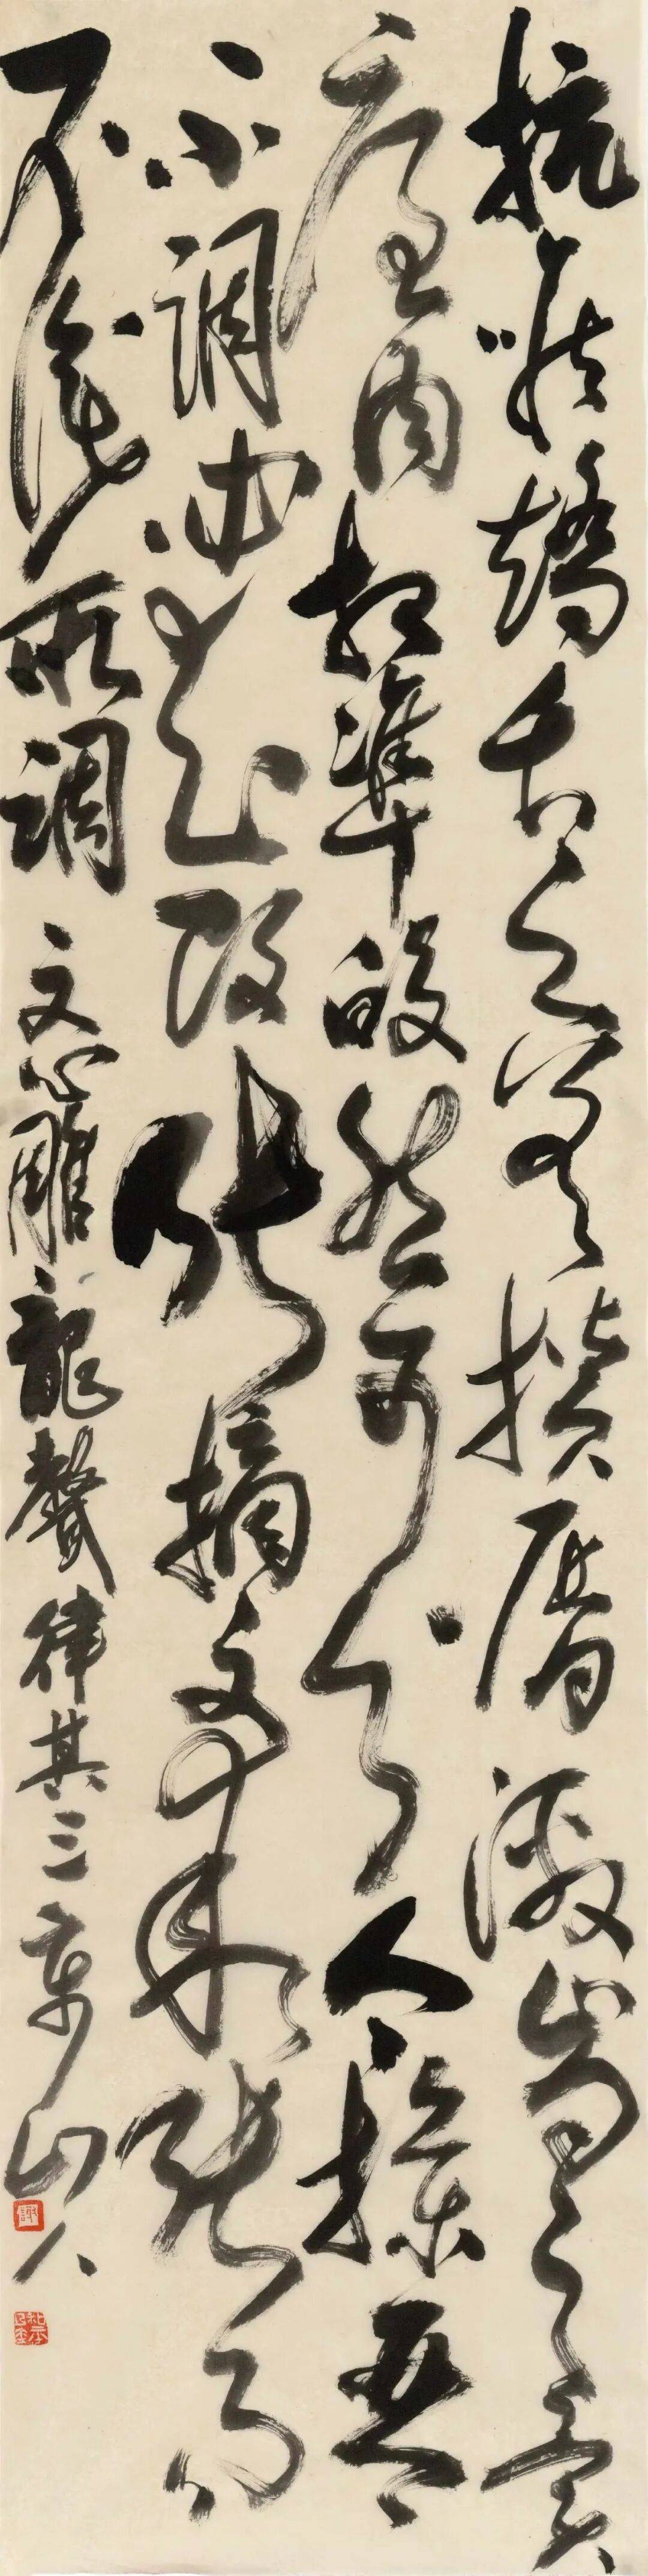 抗喉矯舌之差攢脣激齒之異
廉肉相準皎然可分今操琴
不調必知改張摛文乖張而
不識所調 文心雕龍聲律其三 山人